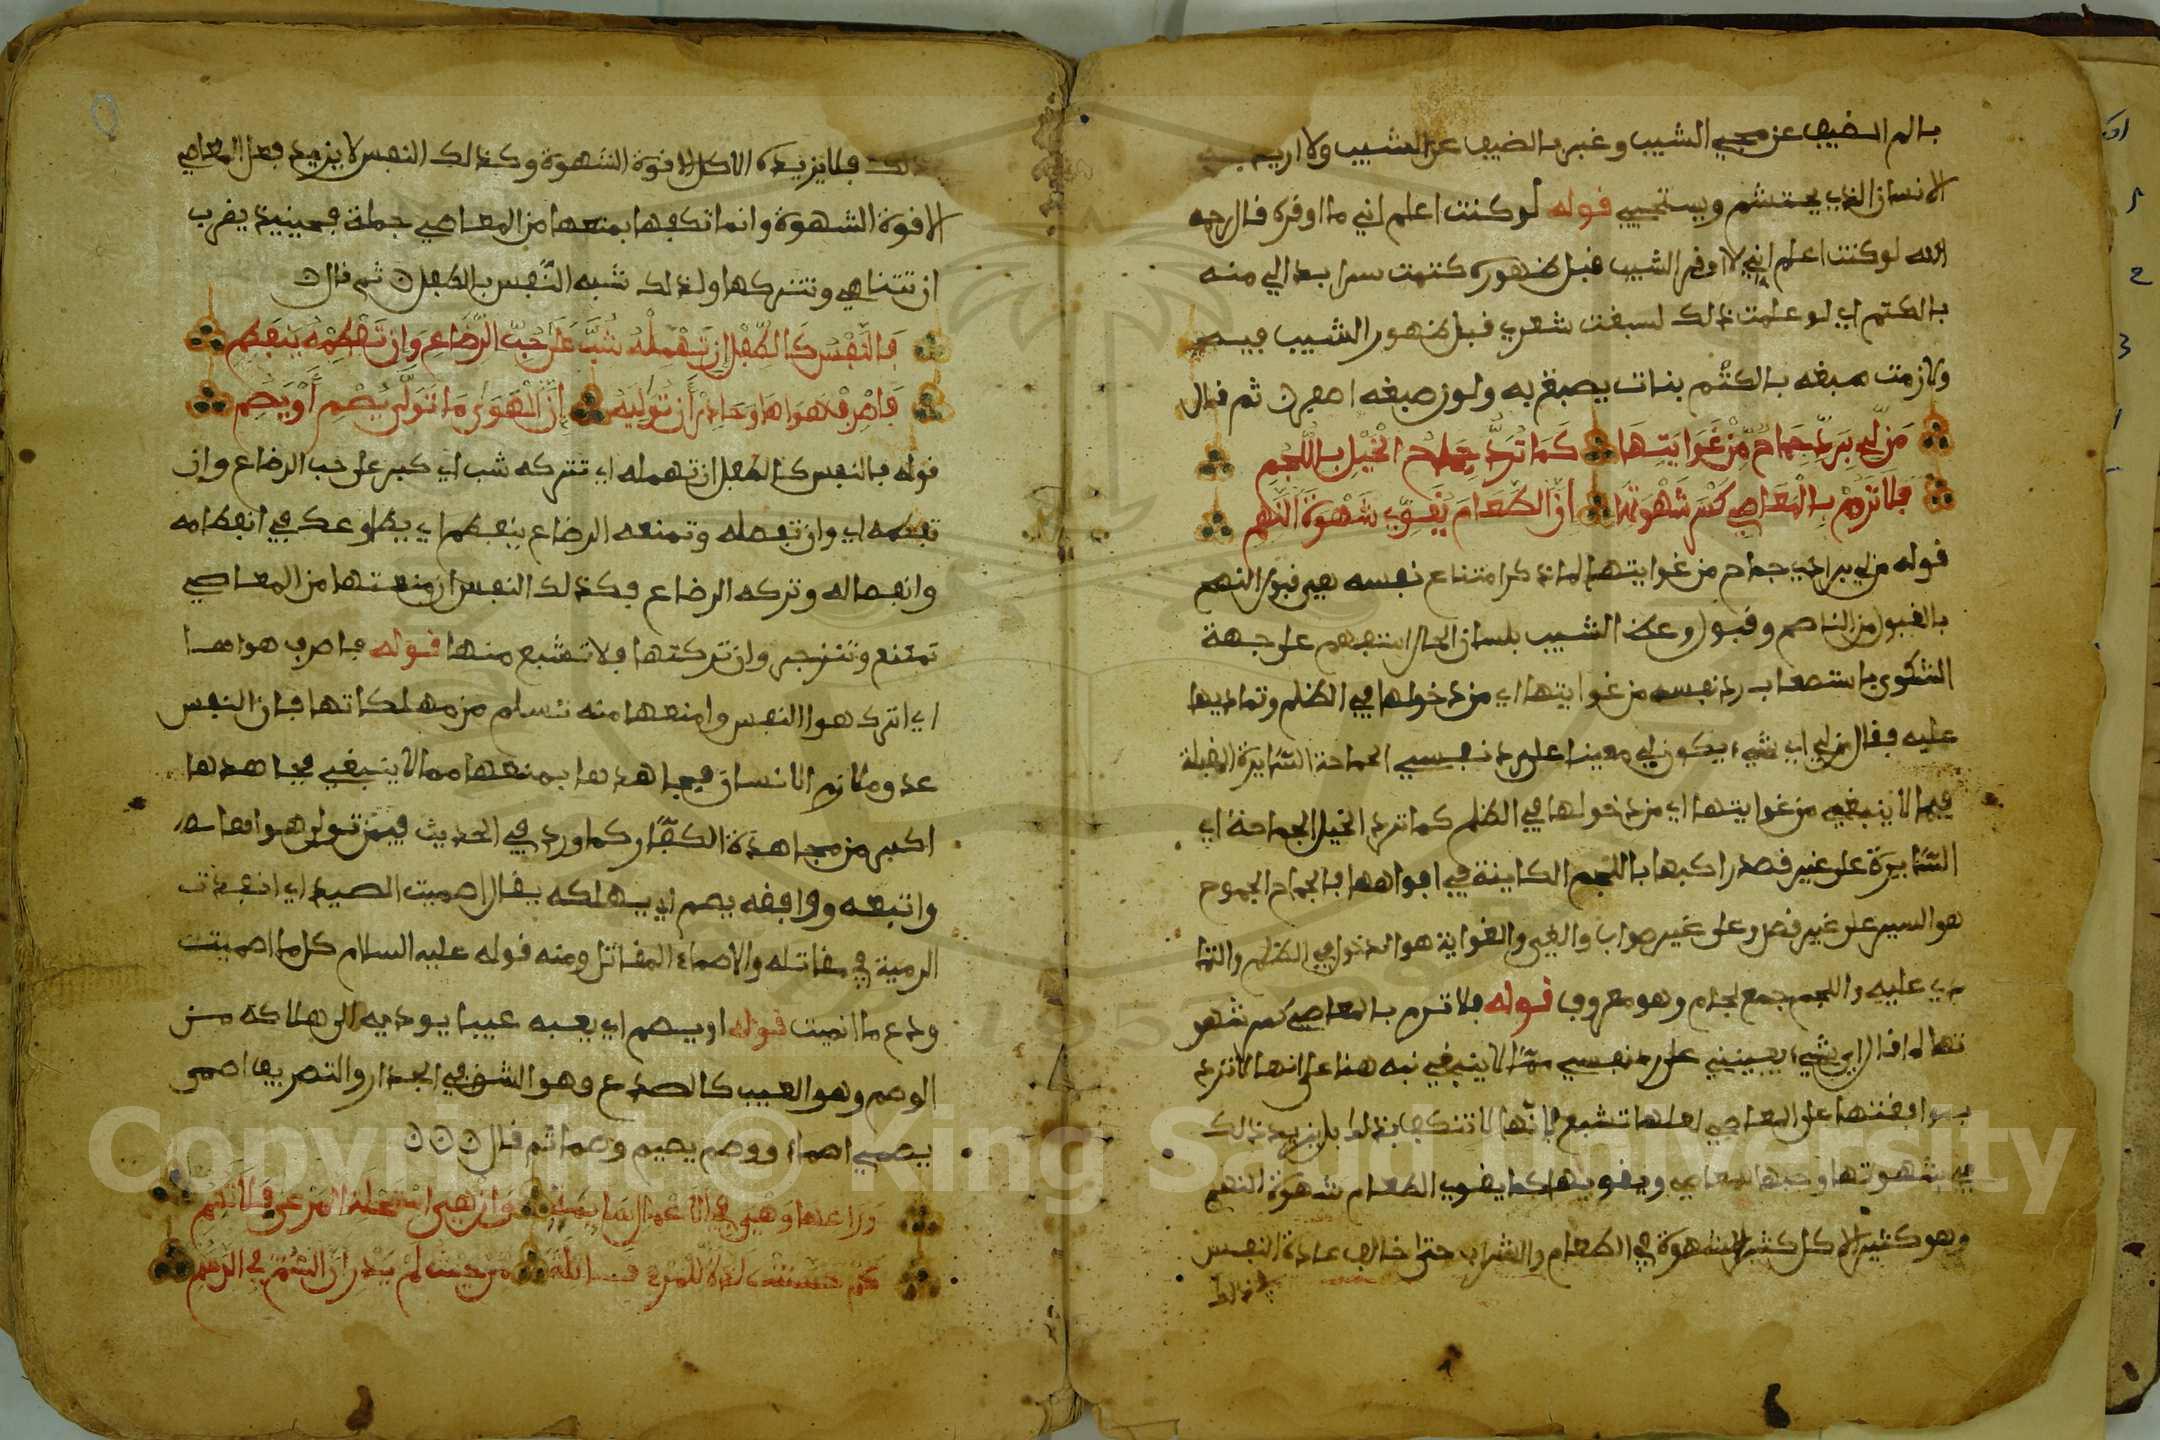 بالم الضيف عن مجي الشيب وعبر بالضيف عن الشيب ولا اريد به
الانسان الذي يحتشم ويستحيى قوله لو كنت اعلم اني ما اوقره قال رحمه
الله لو كنت اعلم اني لا اوقر الشيب قبل ظهوره كتمت سرا بدا لي منه
بالكتم اي لو علمت ذلك لسبقت شعري قبل ظهور الشيب فيه
ولازمت صبغه بالكتم بنات يصبغ به ولون صبغه اصفر ثم قال
مَن لِي بِرَدِّ جِمَاحٍ مِّنْ غَوَايَتِهَا كَمَا تُرَدُّ جِمَاحُ الْخَيْلِ بِاللُّجُمِ
فَلَا تَرُمْ بِالْمَعَاصِي كَسْرَ شَهْوَتِهَا إِنَّ الطَّعَامَ يُقَوِّي شَهْوَةَ النَّهِمِ
قوله من لي برد اي جماح من غوايتها لما ذكر امتناع نفسه عن قبول النهم
بالقبول من الناصح وقبول وعظ الشيب بلسان الحال استفهم على جهة
الشكوى باستصعاب رد نفسه من غوايتها اي من دخولها في الظلم وتماديها
عليه فقال من لي اي شيء يكون لي معينا على رد نفسي الجماحة السايرة المقبلة
فيما لا ينبغي من غوايتها اي من دخولها في الظلم كما ترد الخيل الجماحة اي
السايرة على غير قصد راكبها باللجم الكاينة في افواهها فالجماح الجموح
هو السير على غير قصد وعلى غير صواب والغي والغواية هو الدخول في الظلم والتما
دي عليه واللجم جمع لجام وهو معروف قوله فلا ترم بالمعاصي كسر شهو
تها لما قال اي شيء يعينني على رد نفسي مما لا ينبغي نبه هنا على انها لا ترد
بموافقتها على المعاصي لعلها تشبع لانها لا تنكف بذلك بل يزيد ذلك
في شهوتها وحبها للمعاصي ويقويها كما يقوي الطعام شهوة النهم
وهو كثير الاكل كثير الشهوة في الطعام والشراب حتى خالف عادة النفس
في ذلك
ذلك فلا يزيده الاكل الا قوة الشهوة وكذلك النفس لا يزيد فعل المعاصي
الا قوة الشهوة وانما تكفها بمنعها من المعاصي جملة فحينيذ يقرب
ان تتناهى وتتركها ولذلك شبه النفس بالطفل ثم قال
فَالنَّفْسُ كَالطِّفْلِ إِن تُهْمِلْهُ شَبَّ عَلَى حُبِّ الرَّضَاعِ وَإِن تَفْطِمْهُ يَنفَطِمِ
فَاصْرِفْ هَوَاهَا وَحَاذِرْ أَن تُوَلِّيَهُ إِنَّ الْهَوَى مَا تَوَلَّى يُصْمِ أَوْ يَصِمِ
قوله فالنفس كالطفل ان تهمله اي تتركه شب اي كبر على حب الرضاع وان
تفطمه اي وان تفصله وتمنعه الرضاع ينفطم اي يطاوعك في انفطامه
وانفصاله وتركه الرضاع فكذلك النفس ان منعتها من المعاصي
تمتنع وتنزجر وان تركتها فلا تشبع منها قوله فاصرف هواها
اي اترك هوا النفس وامنعها منه تسلم من مهلكاتها فان النفس
عدو ملازم الانسان فيجاهدها بمنعها مما لا ينبغي فجاهدها
اكبر من مجاهدة الكفار كما ورد في الحديث فيمن تولى هواها
واتبعه ووافقه يصم اي يهلكه يقال اصميت الصيد اي انفذت
الرمية في مقاتله والاصماء المقاتل ومنه قوله عليه السلام كل ما اصميت
ودع ما انميت قوله او يصم اي يعبه عيبا يوديه الى هلاكه من
الوصم وهو العيب كالصدع وهو الشق في الجدار والتصريف اصمى
يصمي اصماء ووصم يصيم وصما ثم قال
وَرَاعِهَا وَهْيَ فِي الْأَعْمَالِ سَايِمَةٌ وَإِنْ هِيَ اسْتَحْلَتِ الْمَرْعَى فَلَا تُسِمِ
كَمْ حَسَّنَتْ لَذَّةً لِلْمَرْءِ قَاتِلَةً مِنْ حَيْثُ لَمْ يَدْرِ أَنَّ السُّمَّ فِي الدَّسَمِ